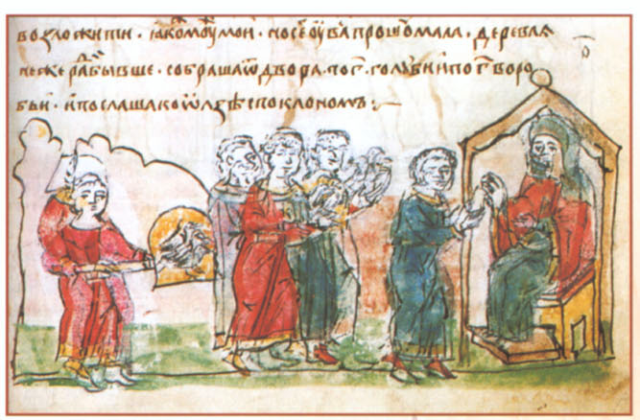 возложити · ꙗкоⷤ моуⷤ мои · но сеⷢ҇ ѹ ваⷭ҇ прошю мала · деревлѧ
не же раⷣ бывше · собраша ѿ двора · по г҃ · голуби и по г҃ воро
бьи · и послаша ко ѡлзѣ с поклономъ :